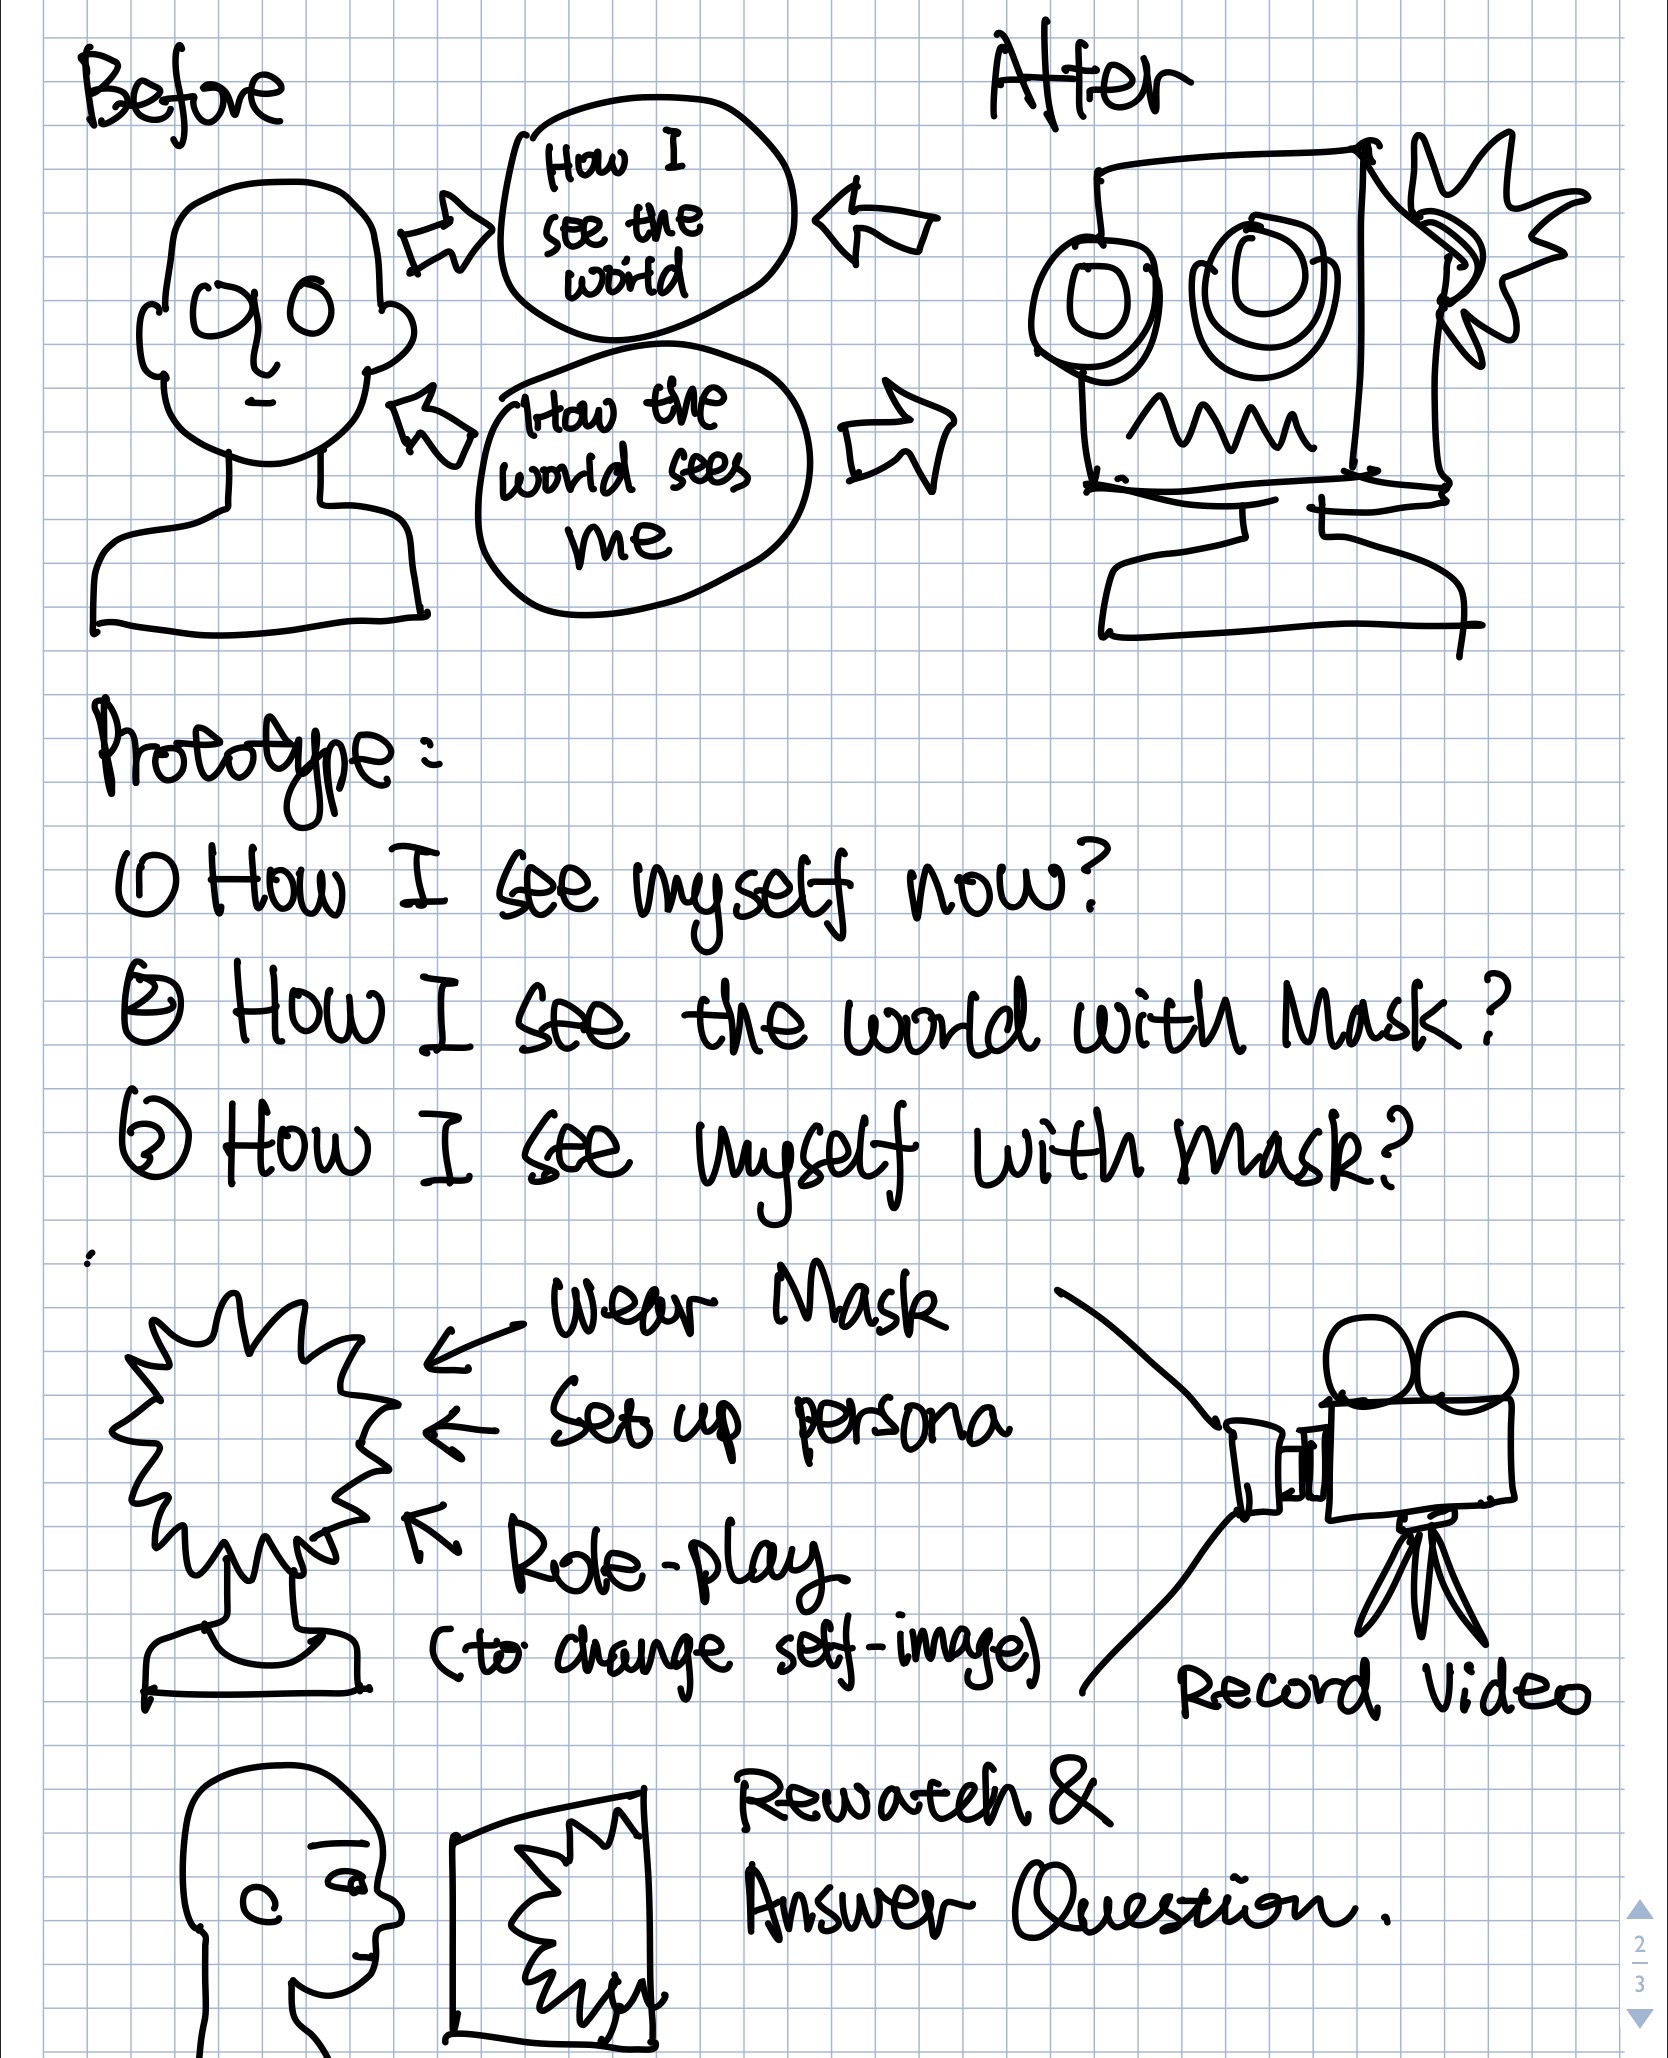 Before
After
How I
see the
world
How the
world sees
me
Prototype:
① How I see myself now?
② How I see the world with Mask?
③ How I see myself with mask?
Wear Mask
Set up persona
Role-play
(to change self-image)
Record Video
Rewatch &
Answer Question.
2
3